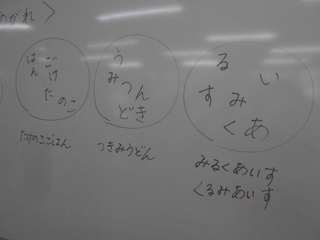 かれ>
ご
は け
ん た の こ
う
み つ ん
ど き
る い
す み
く あ
たけのこごはん
つきみうどん
みるくあいす
くるみあいす